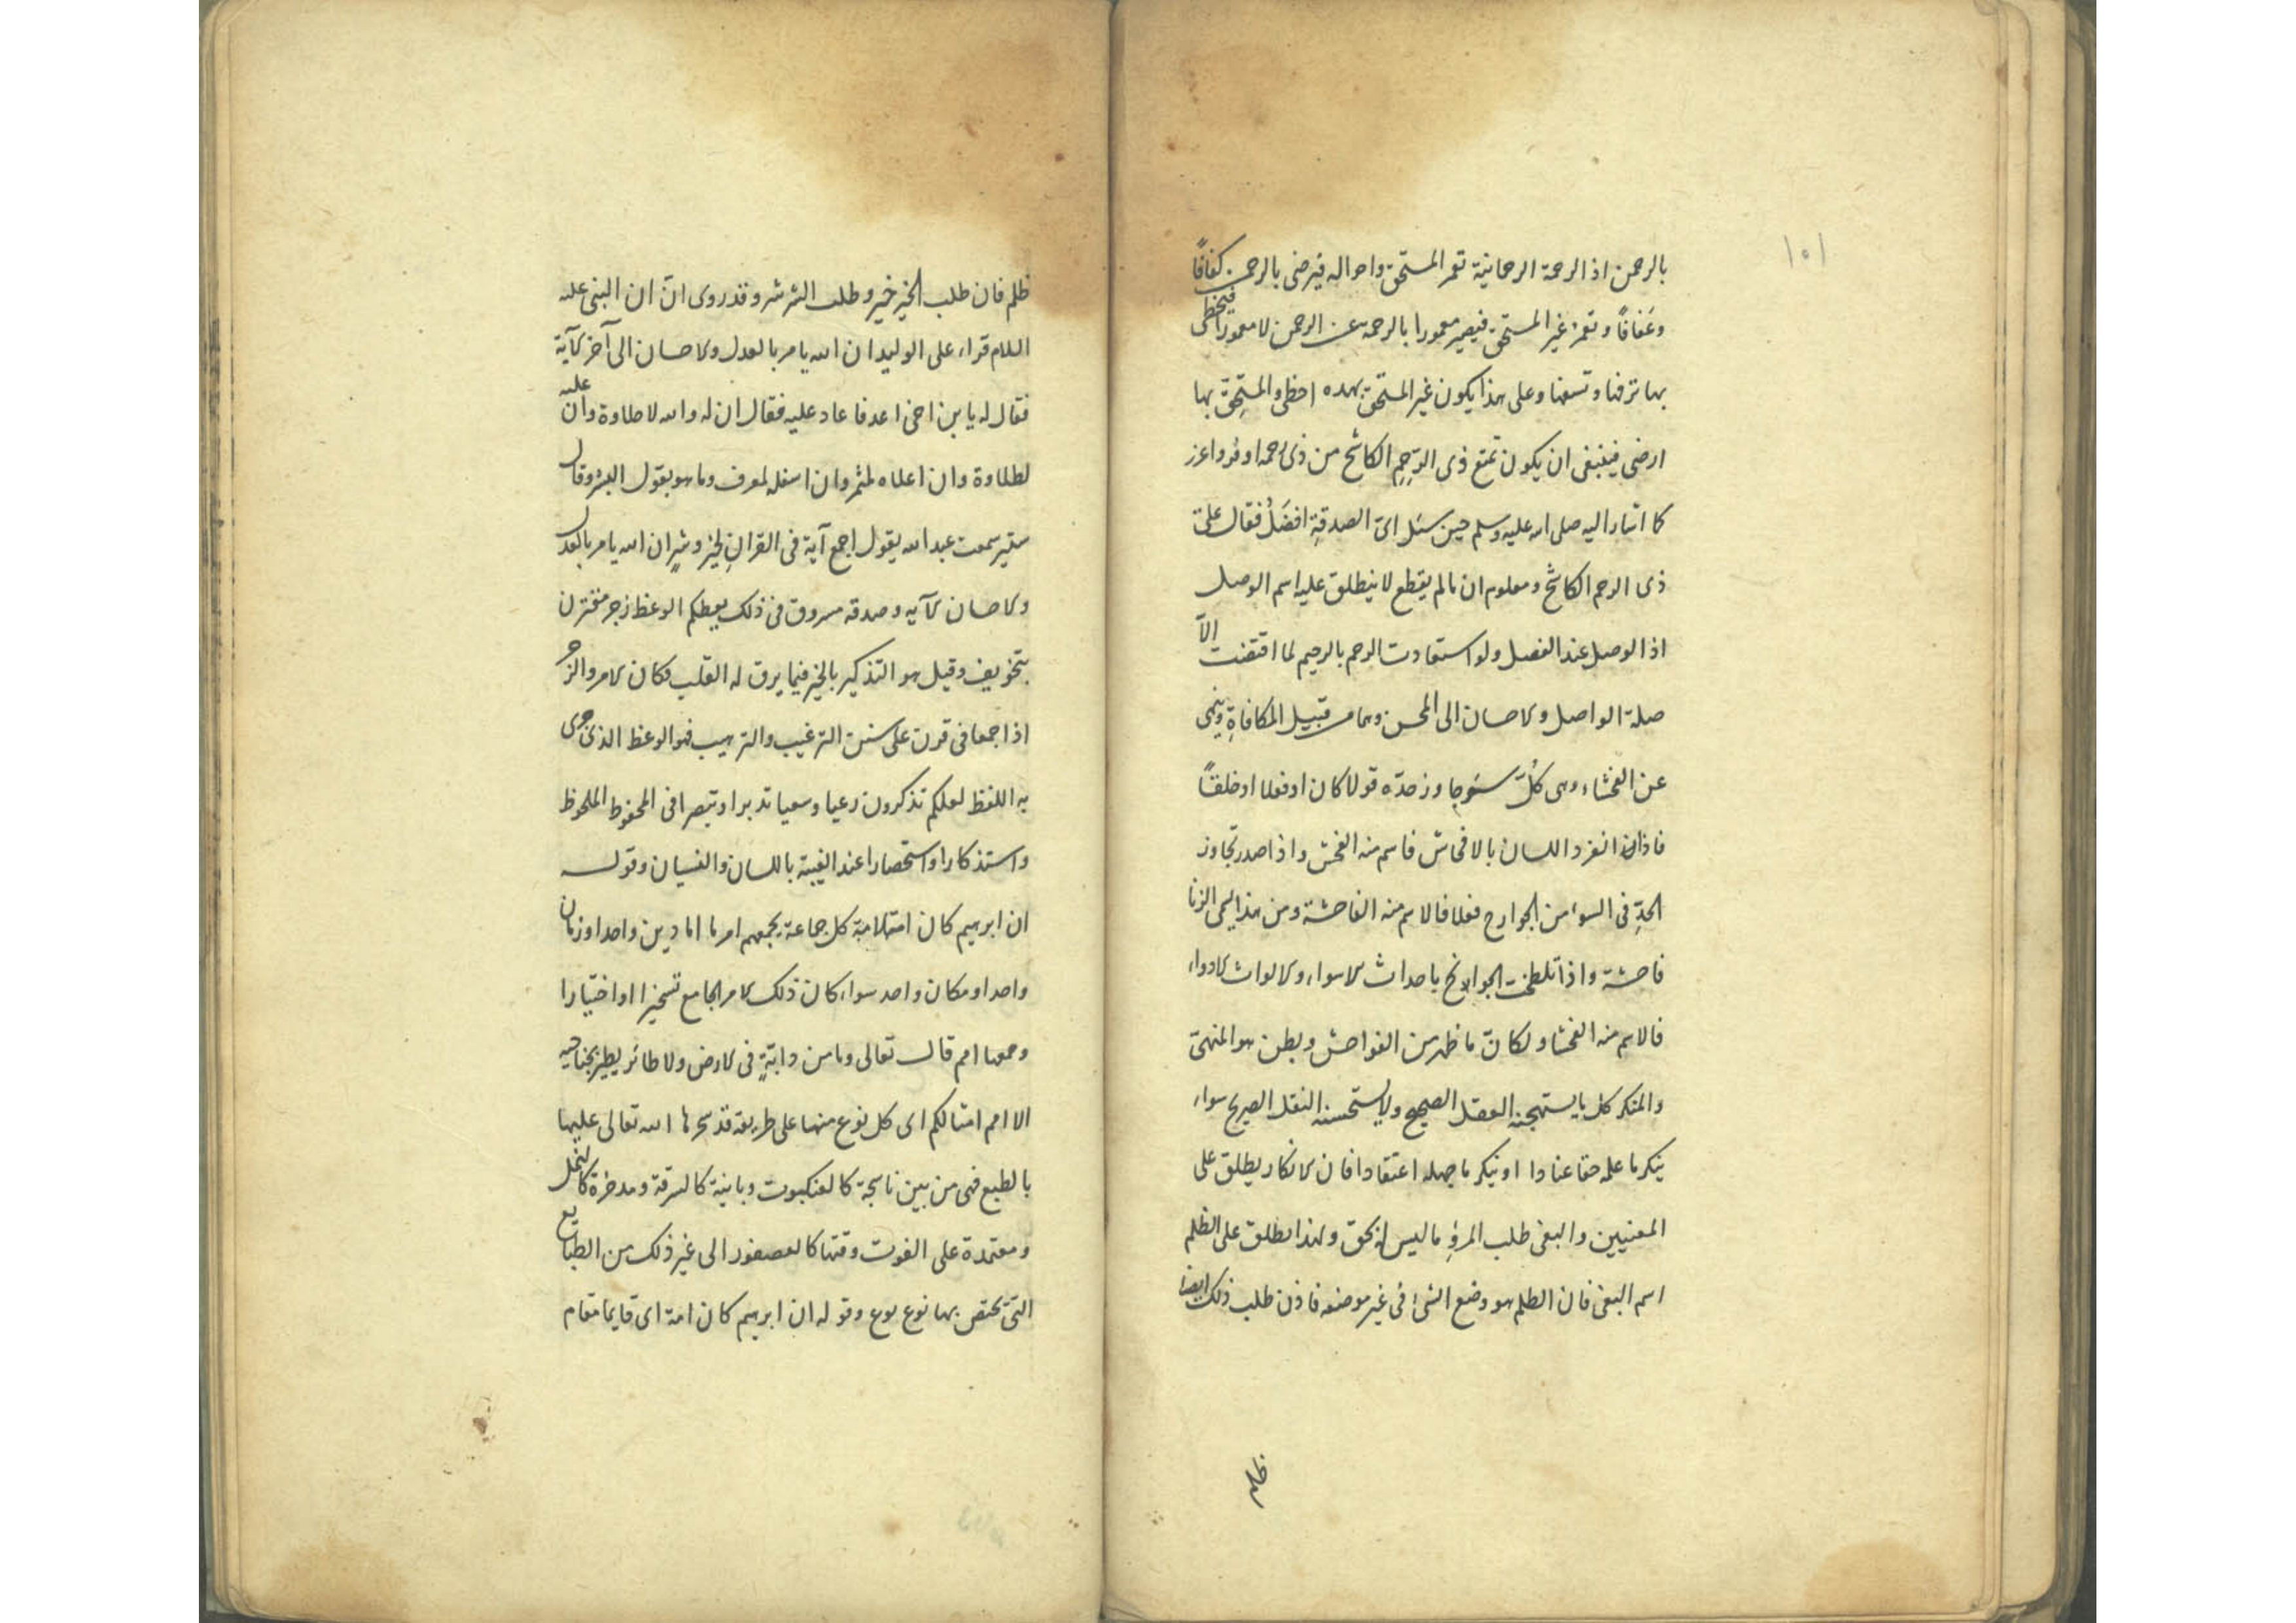 ١٥١
بالرحمن اذ الرحمة الرحمانية تعم المستحق واحواله فيرضى بالرحمن كفافًا
وعَفافًا وتعم غير المستحق فيصير معمورا بالرحمة عن الرحمن لا معمورا فيحظى
بها ترفها وتسعها وعلى هذا يكون غير المستحق بهده احظى والمستحِقّ بها
ارضى فينبغى ان يكون تمتع ذى الرَحِمِ الكاشح من ذى رحمه اوفر واعزز
كما اشار اليه صلى الله عليه وسلم حين سئل اىّ الصدقةِ افضَلُ فقال على
ذى الرحم الكاشح ومعلوم ان مالم يقطع لا ينطلق عليه اسم الوصل
اذ الوصل عند الفصل ولو استعادت الرحم بالرحيم لما اقتضت الّا
صلة الواصل والاحسان الى المحسن وهما من قبيل المكافاةِ وينهى
عن الفحشاء وهى كُلّ سوء جاوز حدّه قولا كان او فعلا او خلقًا
فاذا انفرد اللسان بالافحاش فاسم منه الفحش واذا صدر تجاوز
الحدِّ فى السوء من الجوارح فعلا فالاسم منه الفاحشة ومن هذا سمى الزنا
فاحشة واذا تلطخت الجوانح باحداث الاسواء والالواث الادواء
فالاسم منه الفحشاء ولكان ما ظهر من الفواحش وبطن هو المنهىّ
والمنكر كل ما يستهجنه العقل الصحيح ولا يستحسنه النقل الصريح سواء
ينكر ما علمه حقا عنادا او ينكر ما جهله اعتقادا فان الانكار يطلق على
المعنيين والبغى طلب المرءِ ما ليس له بحق ولهذا يطلق على الظلم
اسم البغى فان الظلم هو وضع الشئ فى غير موضعه فاذن طلب ذلك ايضا
ظلم
ظلم فان طلب الخير خير وطلب الشر شر وقد روى انّ ان النبى عليه
السلام قراء على الوليد ان الله يامر بالعدل والاحسان الى آخر الآية
فقال له يا بن اخى اعد فاعاد عليه فقال ان له والله لاحلاوة وان عليه
لطلاوة وان اعلاه لمثمر وان اسفله لمعرف وما هو بقول البشر وقال
ستير سمعت عبد الله يقول اجمع آية فى القرانِ لخير وشرٍ ان الله يامر بالعدل
والاحسان الآيه وصدقه مسروق فى ذلك يعظكم الوعظ زجر مقترن
بتخويف وقيل هو التذكير بالخير فيما يرق له القلب فكان الامر والزجر
اذا جمعا فى قرن على سنن الترغيب والترهيب فهو الوعظ الذى جرى
به اللفظ لعلكم تذكرون رعيا وسعيا تدبرا وتبصرا فى المحفوظ الملحوظ
واستذكارا واستحضارا عند الغيبة باللسان والنسيان وقوله
ان ابرهيم كان امة الامة كل جماعة يجمعهم امر ما اما دين واحد او زمان
واحد او مكان واحد سواء كان ذلك الامر الجامع تسخيرا او اختيارا
وجمعها امم قال تعالى وما من دابّةٍ فى الارض ولا طائر يطير بجناحيه
الا امم امثالكم اى كل نوع منها على طريقة قد سخرها الله تعالى عليها
بالطبع فهى من بين ناسجة كالعنكبوت وبانية كالسرفة ومدخرة كالنمل
ومعتمدة على القوت وقتها كالعصفور الى غير ذلك من الطبايع
التى يختص بها نوع نوع وقوله ان ابرهيم كان امة اى قايما مقام